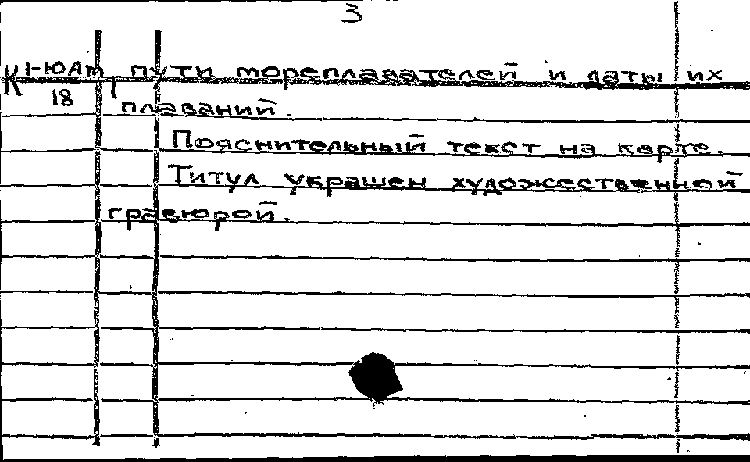 3
К 1-ЮАм пути мореплавателей и даты их
18 плаваний.
Пояснительный текст на карте.
Титул украшен художественной
гравюрой.